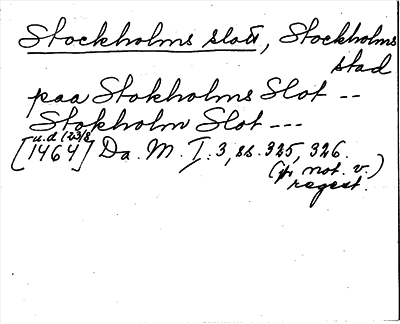 Stockholms slott, Stockholms
stad
paa Stokholms Slot --
Stokholm Slot ---
u.d. (23/8
[1464] Da. M. I: 3, ss. 325, 326.
(jfr not. v.)
regest.